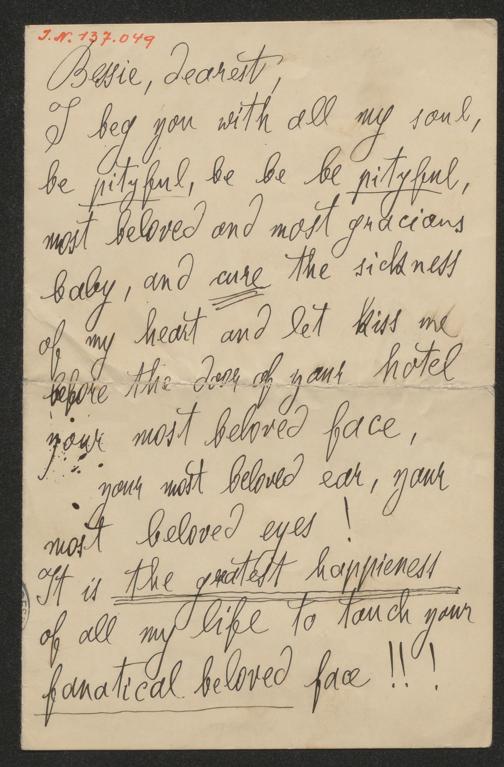 I.N. 137.049
Bessie, dearest,
I beg you with all my soul,
be pityful, be be be pityful,
most beloved and most gracious
baby, and cure the sickness
of my heart and let kiss me
before the door of your hotel
your most beloved face,
your most beloved ear, your
most beloved eyes!
It is the greatest happieness
of all my life to touch your
fanatical beloved face!!!